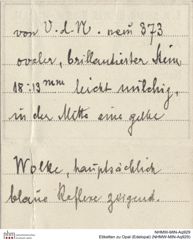 von V. d. N. nein 873
ovaler, brillantierter Stein
18:13 mm leicht milchig,
in der Mitte eine gelbe
Wolke, hauptsächlich
blaue Reflexe zeigend.
NHMW-MIN-Aq929
Etiketten zu Opal (Edelopal) (NHMW-MIN-Aq929)